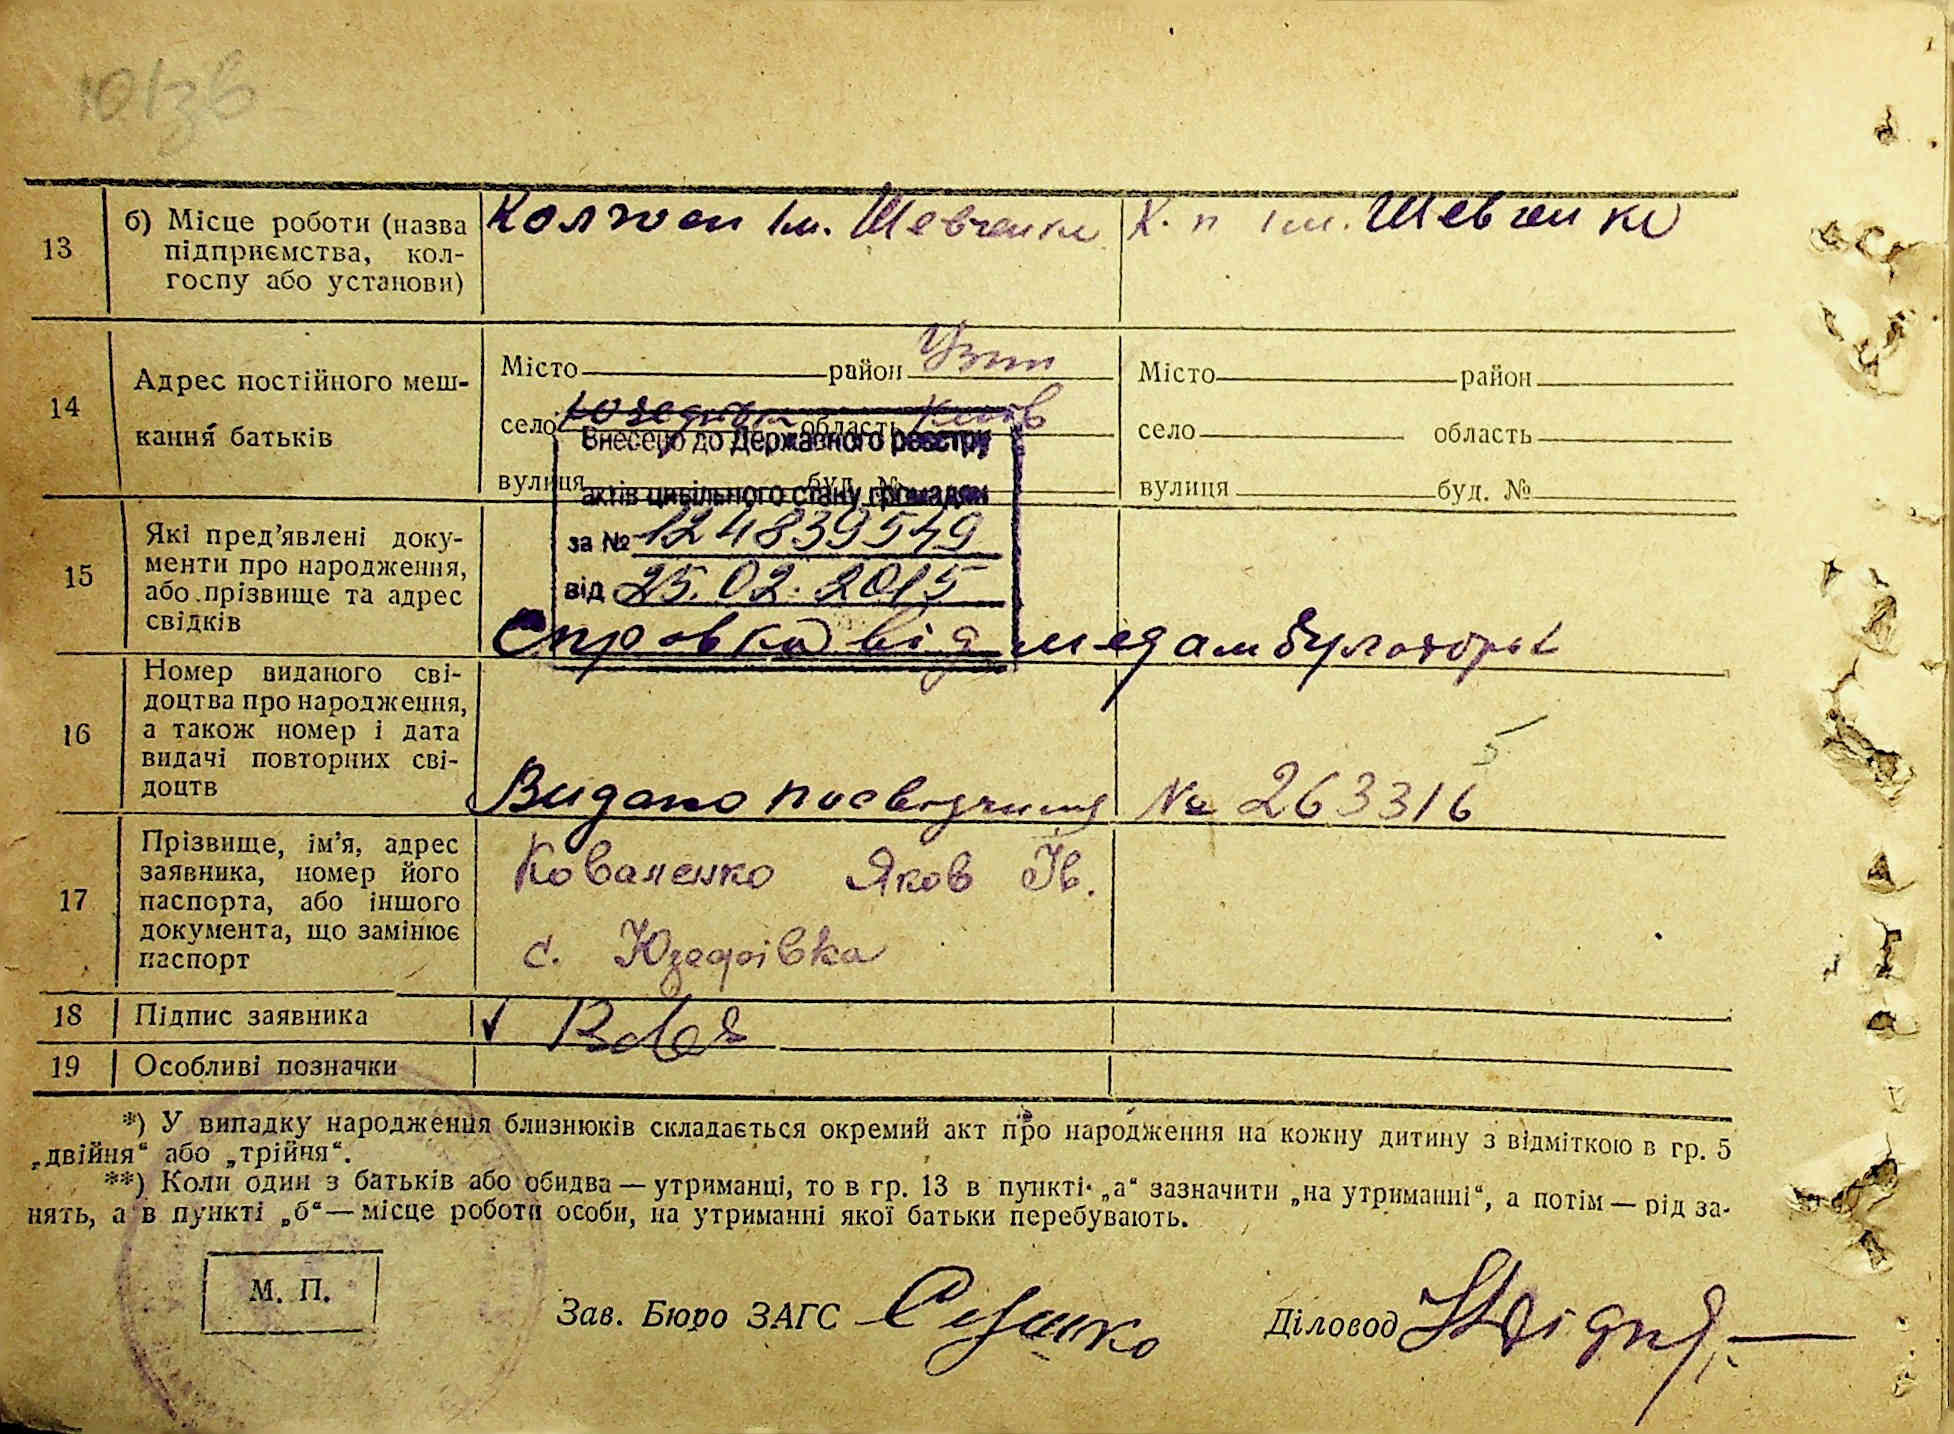 13
б) Місце роботи (назва
підприємства, кол-
госпу або установи)
Колгосп ім. Шевченка
К-п ім. Шевченка
14
Адрес постійного меш-
кання батьків
Місто район Узин
село область Київ
вулиця буд. №
Місто район
село область
вулиця буд. №
Внесено до Державного реєстру
актів цивільного стану громадян
за № 124839549
від 25.02.2015
15
Які пред'явлені доку-
менти про народження,
або прізвище та адрес
свідків
Справка від медамбулаторії
16
Номер виданого сві-
доцтва про народження,
а також номер і дата
видачі повторних сві-
доцтв
Видано посвідчення № 263316
5
17
Прізвище, ім'я, адрес
заявника, номер його
паспорта, або іншого
документа, що замінює
паспорт
Коваленко Яков Ів.
с. Юзефівка
18
Підпис заявника
19
Особливі позначки
*) У випадку народження близнюків складається окремий акт про народження на кожну дитину з відміткою в гр. 5
„двійня“ або „трійня“.
**) Коли один з батьків або обидва — утриманці, то в гр. 13 в пункті „а“ зазначити „на утриманні“, а потім — рід за-
нять, а в пункті „б“ — місце роботи особи, на утриманні якої батьки перебувають.
М. П.
Зав. Бюро ЗАГС
Діловод